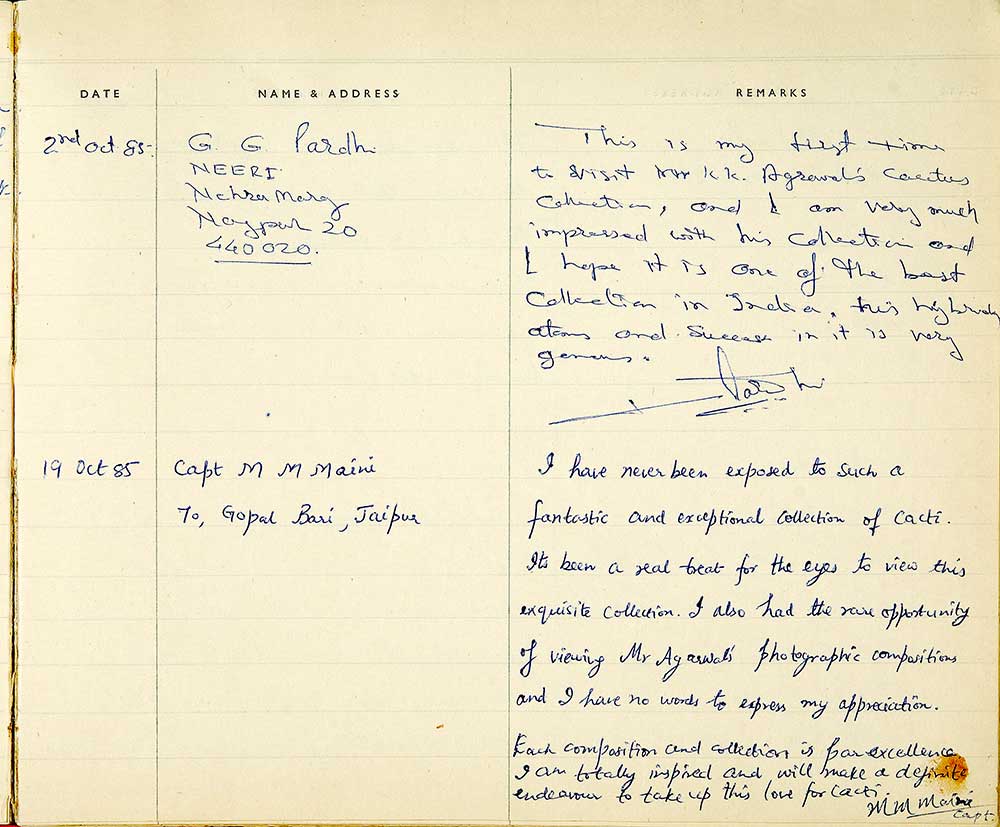 DATE NAME & ADDRESS REMARKS
2nd Oct 85.
G. G. Pardhi
NEERI
Nehru Marg
Nagpur 20
440 020.
This is my first time
to visit Mr K.K. Agrawal's Cactus
Collection, and I am very much
impressed with his Collection and
I hope it is one of the best
Collection in India, his
and Success in it is very
Pardhi
19 Oct 85
Capt M M Maini
70, Gopal Bari, Jaipur
I have never been exposed to such a
fantastic and exceptional collection of Cacti.
Its been a real treat for the eyes to view this
exquisite collection. I also had the rare opportunity
of viewing Mr Agarwal's photographic compositions
and I have no words to express my appreciation.
Each composition and collection is par excellence
I am totally inspired and will make a definite
endeavour to take up this love for Cacti.
M M Maini
Capt.